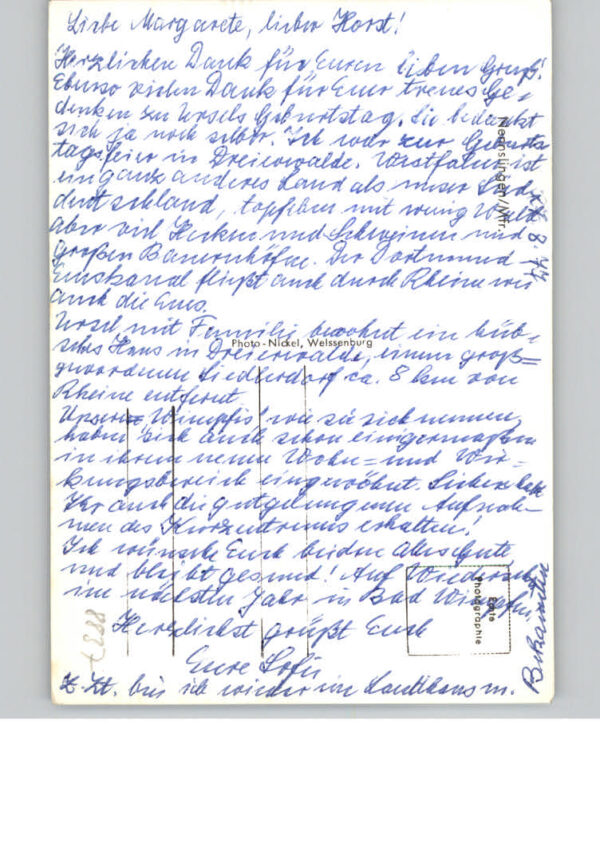 Liebe Margarete, lieber Horst!
Herzlichen Dank für Euren lieben Gruß!
Ebenso vielen Dank für Euer treues Ge-
denken zu Ursels Geburtstag. Sie bedankt
sich ja noch selber. Ich war zur Geburts
tagsfeier in Dreierwalde. Westfalen ist
ein ganz anderes Land als unser Süd
deutschland, topfeben mit wenig Wald
aber viel Hecken und Schweinen und
großen Bauernhöfen. Der Dortmund-
Emskanal fließt auch durch Rheine wie
auch die Ems.
Ursel mit Familie bewohnt ein hüb-
sches Haus in Dreierwalde, einem groß=
gewordenen Siedlerdorf ca. 8 km von
Rheine entfernt.
Unsere "Wimpfis" wie sie sich nennen,
haben sich auch schon einigermaßen
in ihrem neuen Wohn= und Wir-
kungsbereich eingewöhnt. Sicher habt
Ihr auch die gutgelungenen Aufnah-
men des Kurzentrums erhalten!
Ich wünsche Euch beiden alles Gute
und bleibt gesund! Auf Wiedersehn
im nächsten Jahr in Bad Wimpfen.
Herzlichst grüßt Euch
Eure
z. Zt. bin ich wieder im Landhaus m.
Bekannten
Nennslingen/Mfr.
Photo-Nickel, Weissenburg
Echte
Photographie